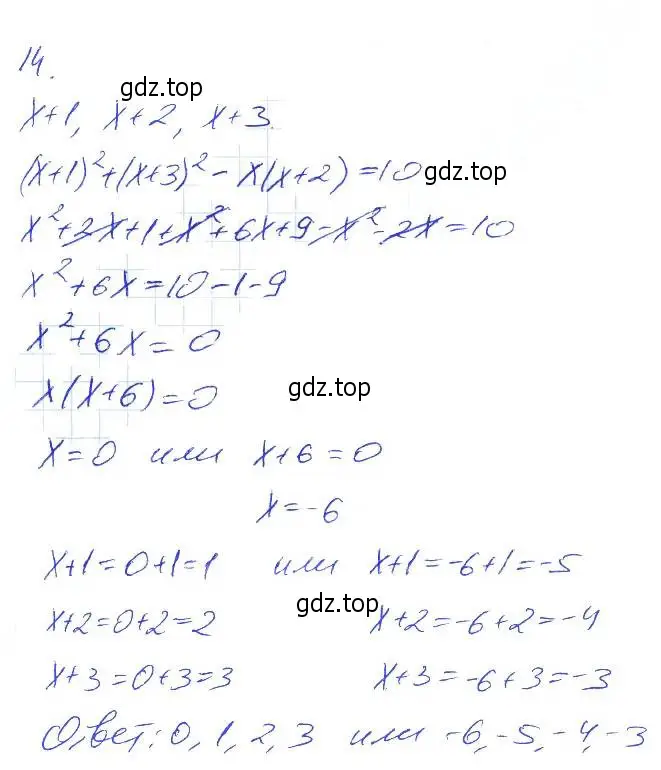 14.
gdz.top
x+1, x+2, x+3.
(x+1)²+(x+3)² - x(x+2)=10
gdz.top
x²+2x+1+x²+6x+9-x²-2x=10
x²+6x=10-1-9
x²+6x=0
x(x+6)=0
gdz.top
x=0 или x+6=0
x=-6
x+1=0+1=1 или x+1=-6+1=-5
gdz.top
x+2=0+2=2 x+2=-6+2=-4
x+3=0+3=3 x+3=-6+3=-3
Ответ: 0, 1, 2, 3 или -6, -5, -4, -3